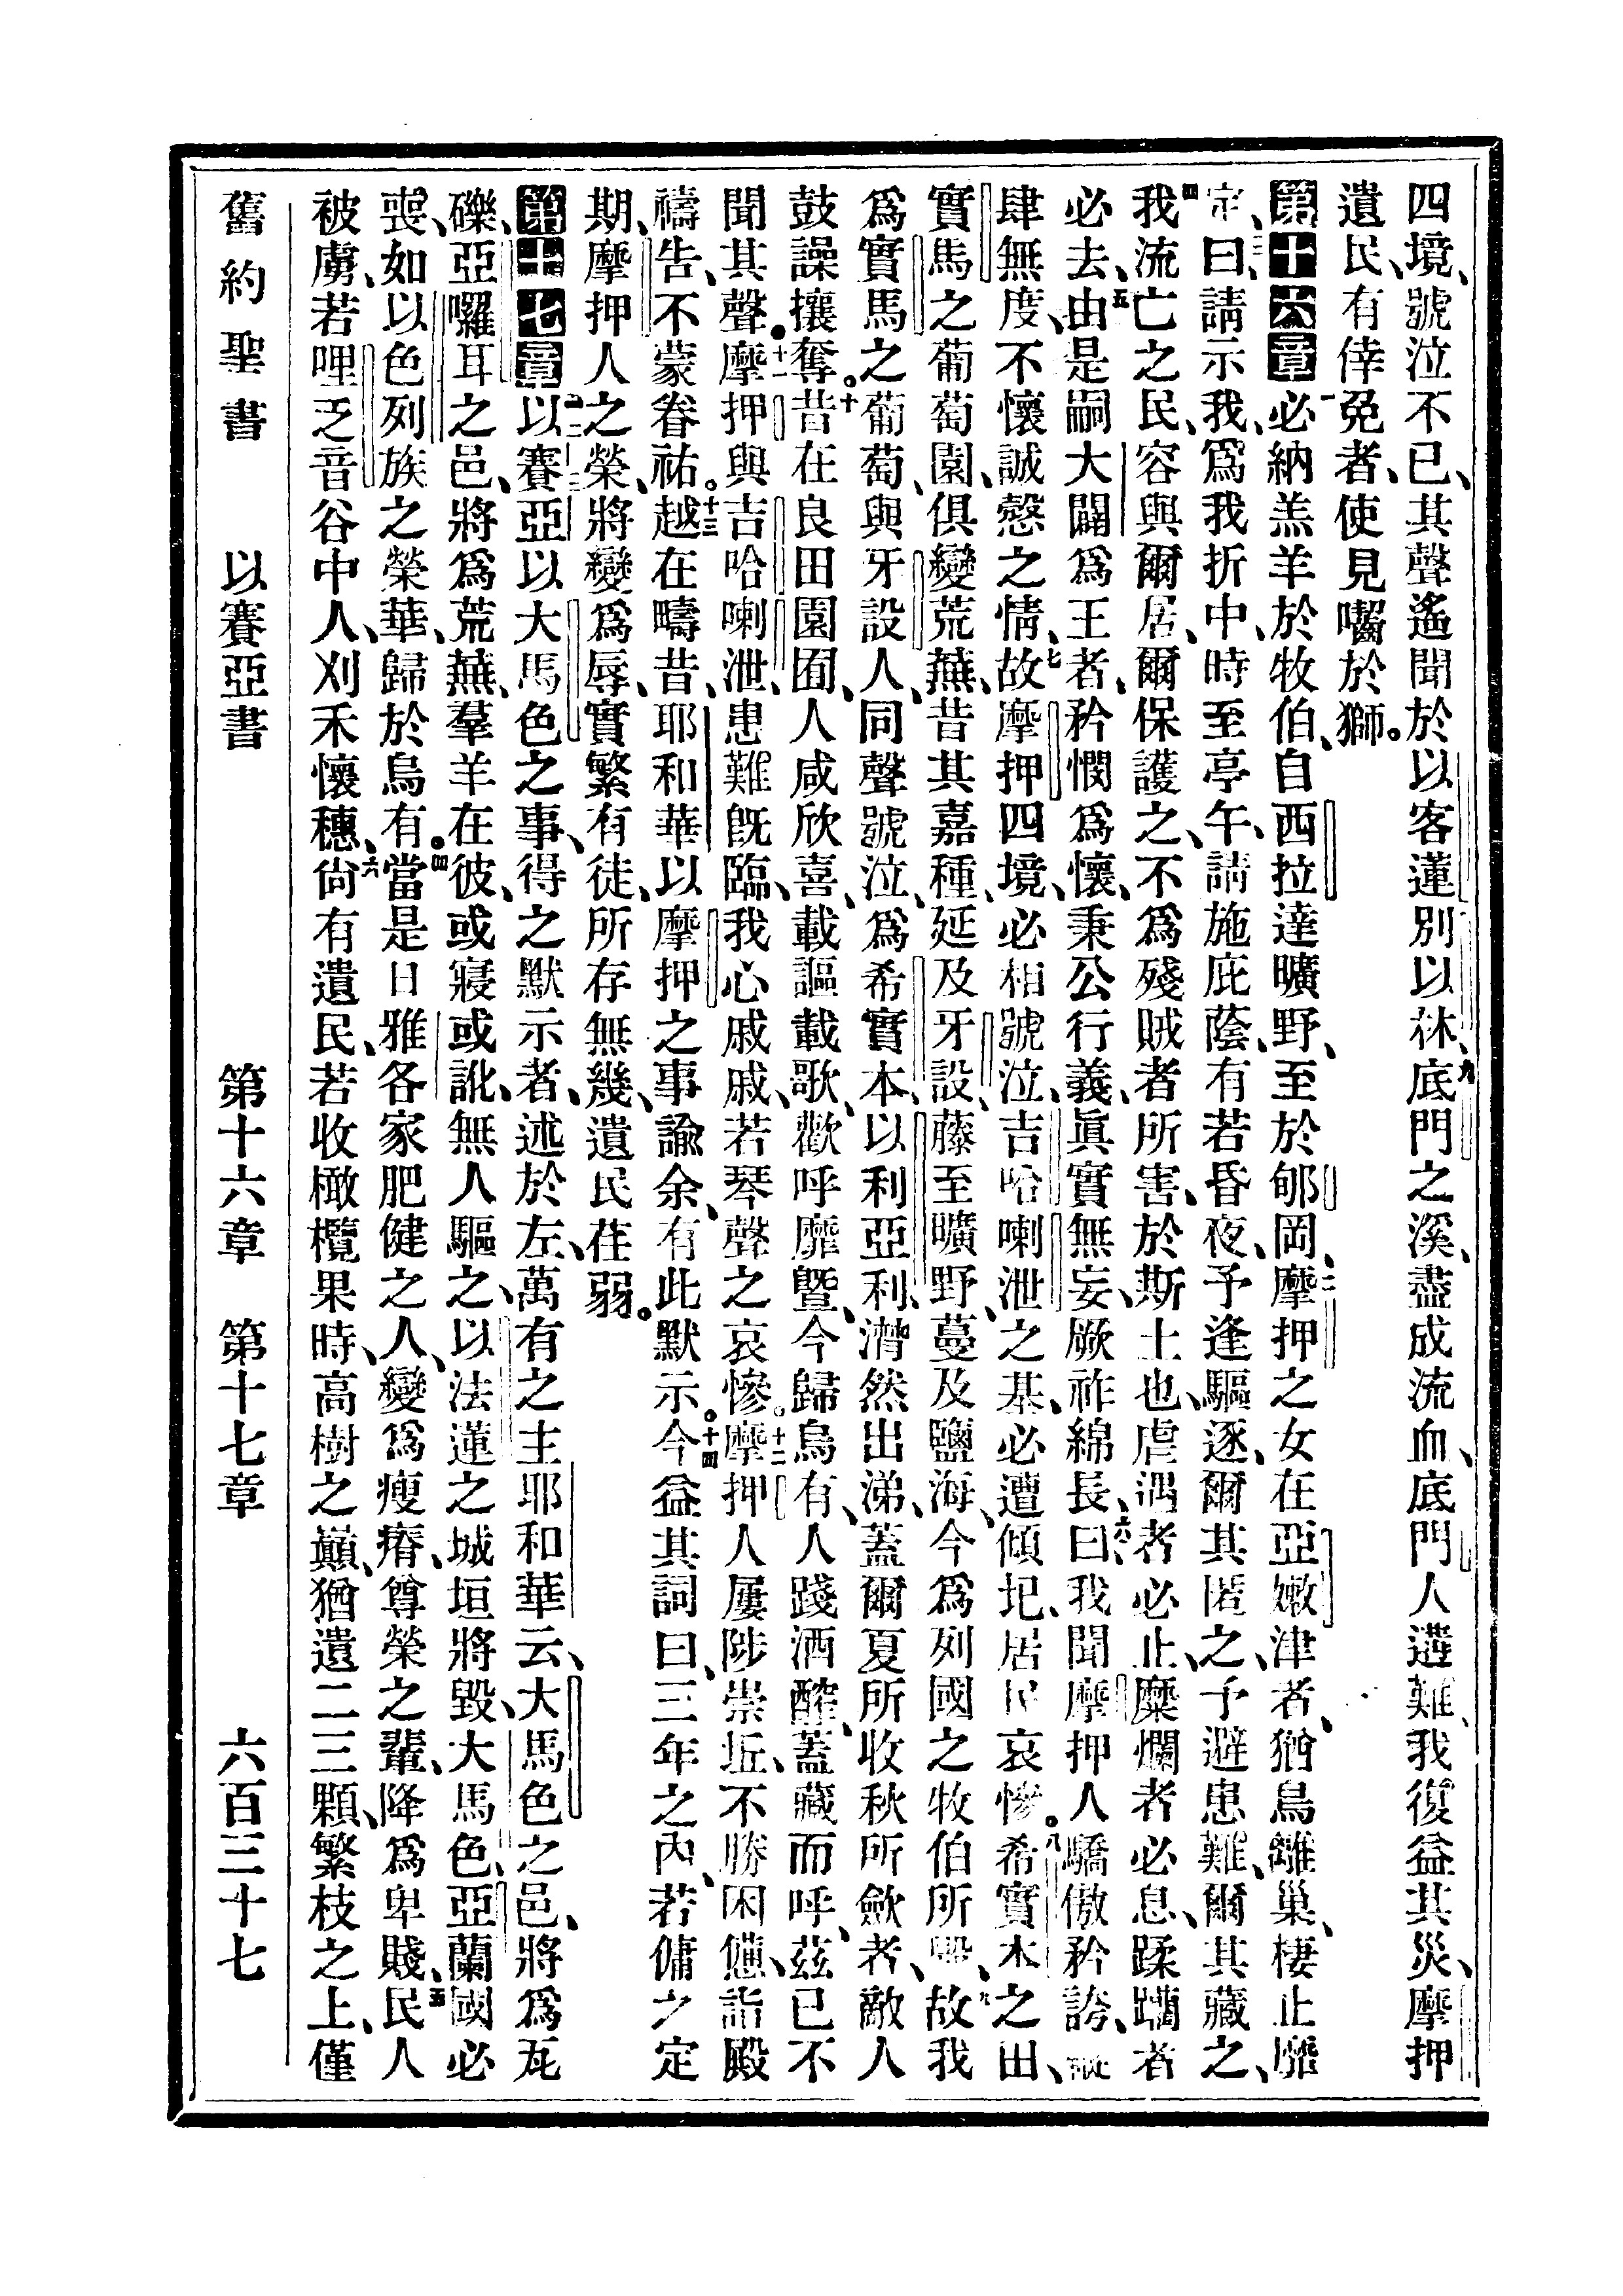 四境、號泣不已、其聲遙聞於以客蓮別以林、九底門之溪、盡成流血、底門人遭難、我復益其災、摩押
遺民、有倖免者、使見囓於獅。
第十六章一必納羔羊於牧伯、自西拉達曠野、至於郇岡、二摩押之女在亞嫩津者、猶鳥離巢、棲止靡
定、三曰、請示我、爲我折中、時至亭午、請施庇蔭、有若昏夜、予逢驅逐、爾其匿之、予避患難、爾其藏之、
四我流亡之民、容與爾居、爾保護之、不爲殘賊者所害、於斯土也、虐遇者必止、糜爛者必息、蹂躪者
必去、五由是嗣大闢爲王者、矜憫爲懷、秉公行義、眞實無妄、厥祚綿長、六曰、我聞摩押人驕傲矜誇、縱
肆無度、不懷誠慤之情、七故摩押四境、必相號泣、吉哈喇泄之基、必遭傾圮、居民哀慘。八希實本之田、
實馬之葡萄園、俱變荒蕪、昔其嘉種、延及牙設、藤至曠野、蔓及鹽海、今爲列國之牧伯所毀、九故我
爲實馬之葡萄、與牙設人、同聲號泣、爲希實本、以利亞利、潸然出涕、蓋爾夏所收秋所斂者、敵人
鼓譟攘奪。十昔在良田園囿、人咸欣喜、載謳載歌、歡呼靡曁、今歸烏有、人踐酒醡、蓋藏而呼、茲已不
聞其聲。十一摩押與吉哈喇泄、患難旣臨、我心戚戚、若琴聲之哀慘。十二摩押人屢陟崇坵、不勝困憊、詣殿
禱告、不蒙眷祐。十三越在疇昔、耶和華以摩押之事諭余、有此默示。十四今益其詞曰、三年之內、若傭之定
期、摩押人之榮、將變爲辱、實繁有徒、所存無幾、遺民荏弱。
第十七章一以賽亞以大馬色之事、得之默示者、述於左、萬有之主耶和華云、大馬色之邑、將爲瓦
礫、二亞囉耳之邑、將爲荒蕪、羣羊在彼、或寢或訛、無人驅之、三以法蓮之城垣將毀、大馬色、亞蘭國必
喪、如以色列族之榮華、歸於烏有。四當是日雅各家肥健之人、變爲瘦瘠、尊榮之輩、降爲卑賤、五民人
被虜、若哩乏音谷中人、刈禾懷穗、六尙有遺民、若收橄欖果時、高樹之巔、猶遺二三顆、繁枝之上、僅
舊約聖書 以賽亞書 第十六章 第十七章 六百三十七